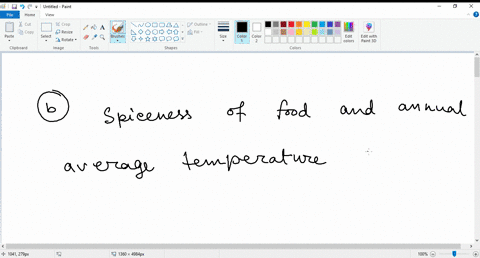 Untitled - Paint
File Home View
Paste
Cut
Copy
Crop
Resize
Rotate
Select
Brushes
Outline
Fill
Size
Color 1
Color 2
Edit colors
Edit with Paint 3D
Clipboard Image Tools Shapes Colors
b Spiceness of food and annual
average temperature
1041, 279px 1360 × 4984px 100%